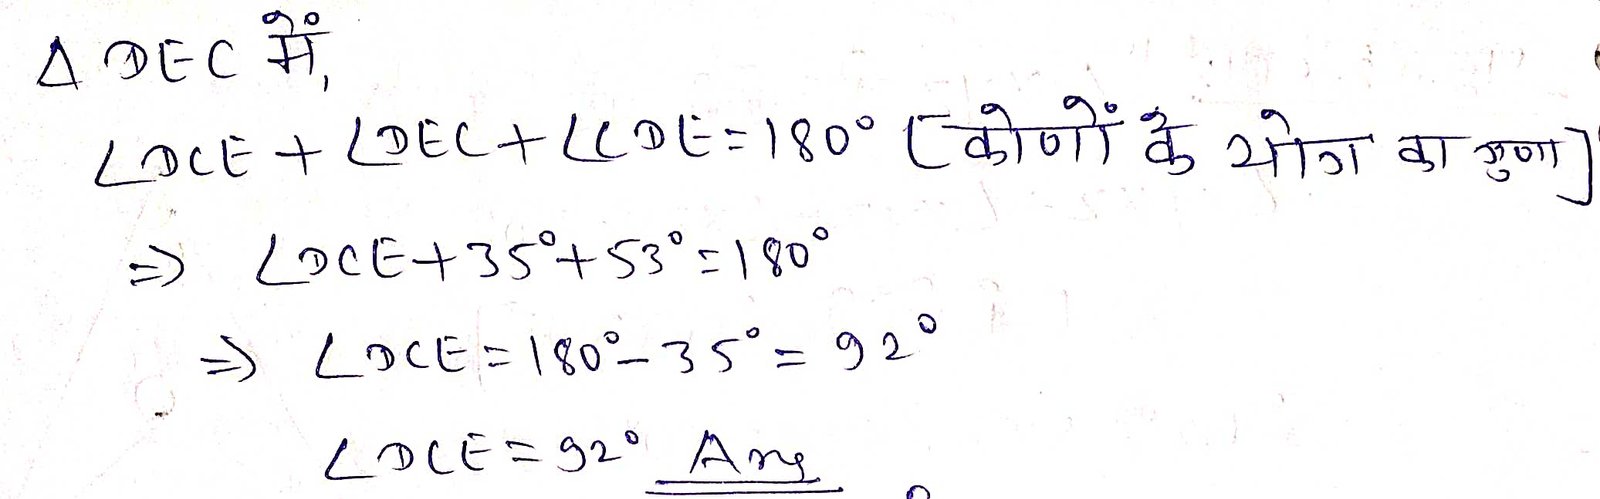 Δ DEC में,
∠DCE + ∠DEC + ∠CDE = 180° [कोणों के योग का गुणा]
⇒ ∠DCE + 35° + 53° = 180°
⇒ ∠DCE = 180° - 35° = 92°
∠DCE = 92° Ans